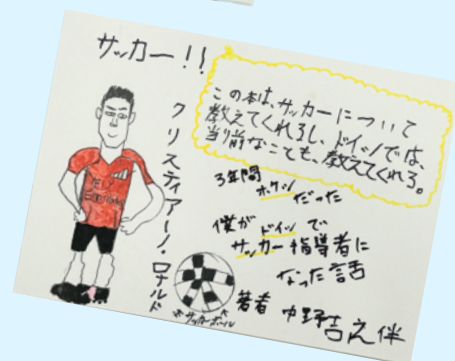 サッカー!!
この本は、サッカーについて
教えてくれるし、ドイツでは、
当り前なことも、教えてくれる。
クリスティアーノ・ロナルド
3年間
ホケツ
だった
僕がドイツで
サッカー指導者に
なった話
サッカーボール
著者 中野吉之伴